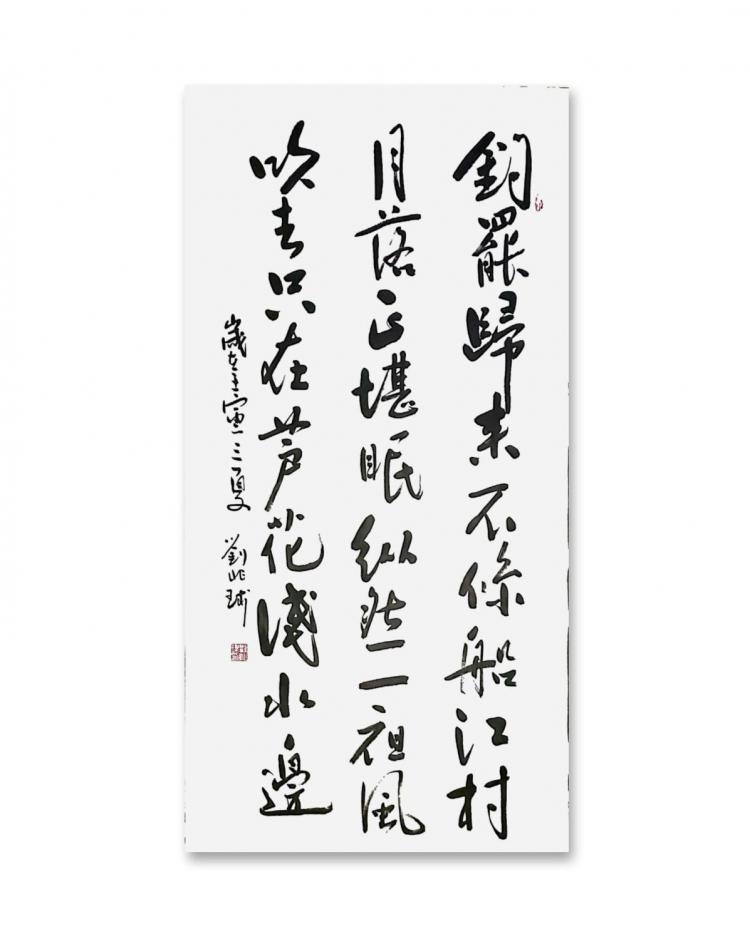 釣罷歸来不係船江村
月落正堪眠纵然一夜風
吹去只在芦花淺水邊
歲在壬寅三夏 劉球